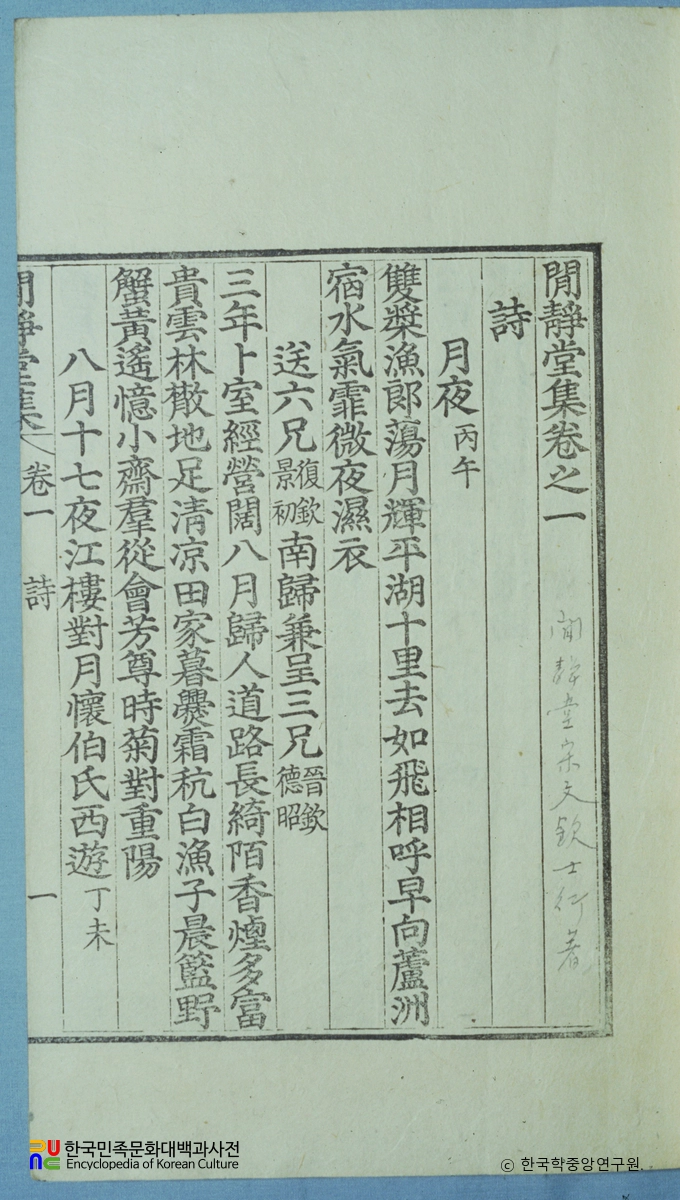 閒靜堂集卷之一
閒靜堂宋文欽士行著
詩
月夜 丙午
雙槳漁郎蕩月輝平湖十里去如飛相呼早向蘆洲
宿水氣霏微夜濕衣
送六兄 復欽 景初 南歸兼呈三兄 晉欽 德昭
三年卜室經營闊八月歸人道路長綺陌香煙多富
貴雲林散地足淸凉田家暮爨霜秔白漁子晨籃野
蟹黃遙憶小齋羣從會芳尊時菊對重陽
八月十七夜江樓對月懷伯氏西遊 丁未
閒靜堂集 卷一 詩 一
한국민족문화대백과사전
Encyclopedia of Korean Culture
© 한국학중앙연구원